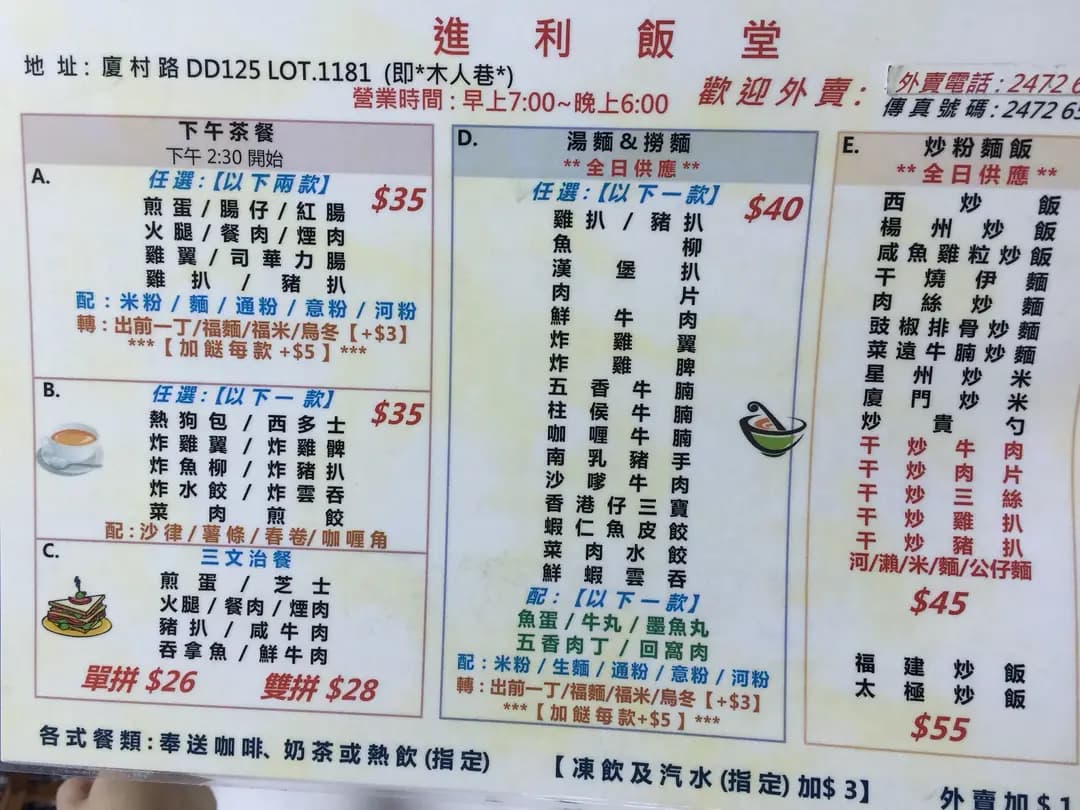 進利飯堂
地址：廈村路DD125 LOT.1181 (即*木人巷*)
營業時間：早上7:00~晚上6:00
歡迎外賣：
外賣電話：2472 6
傳真號碼：2472 65
下午茶餐
下午 2:30 開始
A.
任選：【以下兩款】
$35
煎蛋/腸仔/紅腸
火腿/餐肉/煙肉
雞翼/司華力腸
雞扒/豬扒
配：米粉/麵/通粉/意粉/河粉
轉：出前一丁/福麵/福米/烏冬【+$3】
***【加餸每款+$5】***
B.
任選：【以下一款】
$35
熱狗包/西多士
炸雞翼/炸雞髀
炸魚柳/炸豬扒
炸水餃/炸雲吞
菜肉煎餃
配：沙律/薯條/春卷/咖喱角
C.
三文治餐
煎蛋/芝士
火腿/餐肉/煙肉
豬扒/咸牛肉
吞拿魚/鮮牛肉
單拼 $26 雙拼 $28
D.
湯麵&撈麵
**全日供應**
任選：【以下一款】
$40
雞扒/豬扒
魚柳
漢堡扒
肉片
鮮牛肉
炸雞翼
炸雞脾
五香牛腩
柱侯牛腩
咖喱牛腩
南乳豬手
沙嗲牛肉
香港仔三寶
蝦仁魚皮餃
菜肉水餃
鮮蝦雲吞
配：【以下一款】
魚蛋/牛丸/墨魚丸
五香肉丁/回窩肉
配：米粉/生麵/通粉/意粉/河粉
轉：出前一丁/福麵/福米/烏冬【+$3】
***【加餸每款+$5】***
E.
炒粉麵飯
**全日供應**
西炒飯
楊州炒飯
咸魚雞粒炒飯
干燒伊麵
肉絲炒麵
豉椒排骨炒麵
菜遠牛腩炒麵
星州炒米
廈門炒米
炒貴勺
干炒牛肉
干炒肉片
干炒三絲
干炒雞扒
干炒豬扒
河/瀨/米/麵/公仔麵
$45
福建炒飯
太極炒飯
$55
各式餐類：奉送咖啡、奶茶或熱飲(指定)
【凍飲及汽水(指定)加$3】
外賣加$1